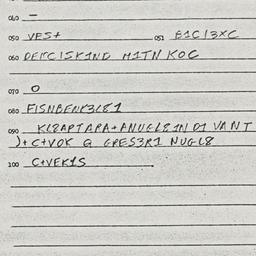 040 –
050 VES+ 051 B1C13XC
060 DEFCISKIND H1TN KOC
070 O
080 FISNBENK3L81
090 KL8APTAPA+ANUGL81N D1 VANT
)+C+VOK G GPES3R1 NUGL8
100 C+VEK1S